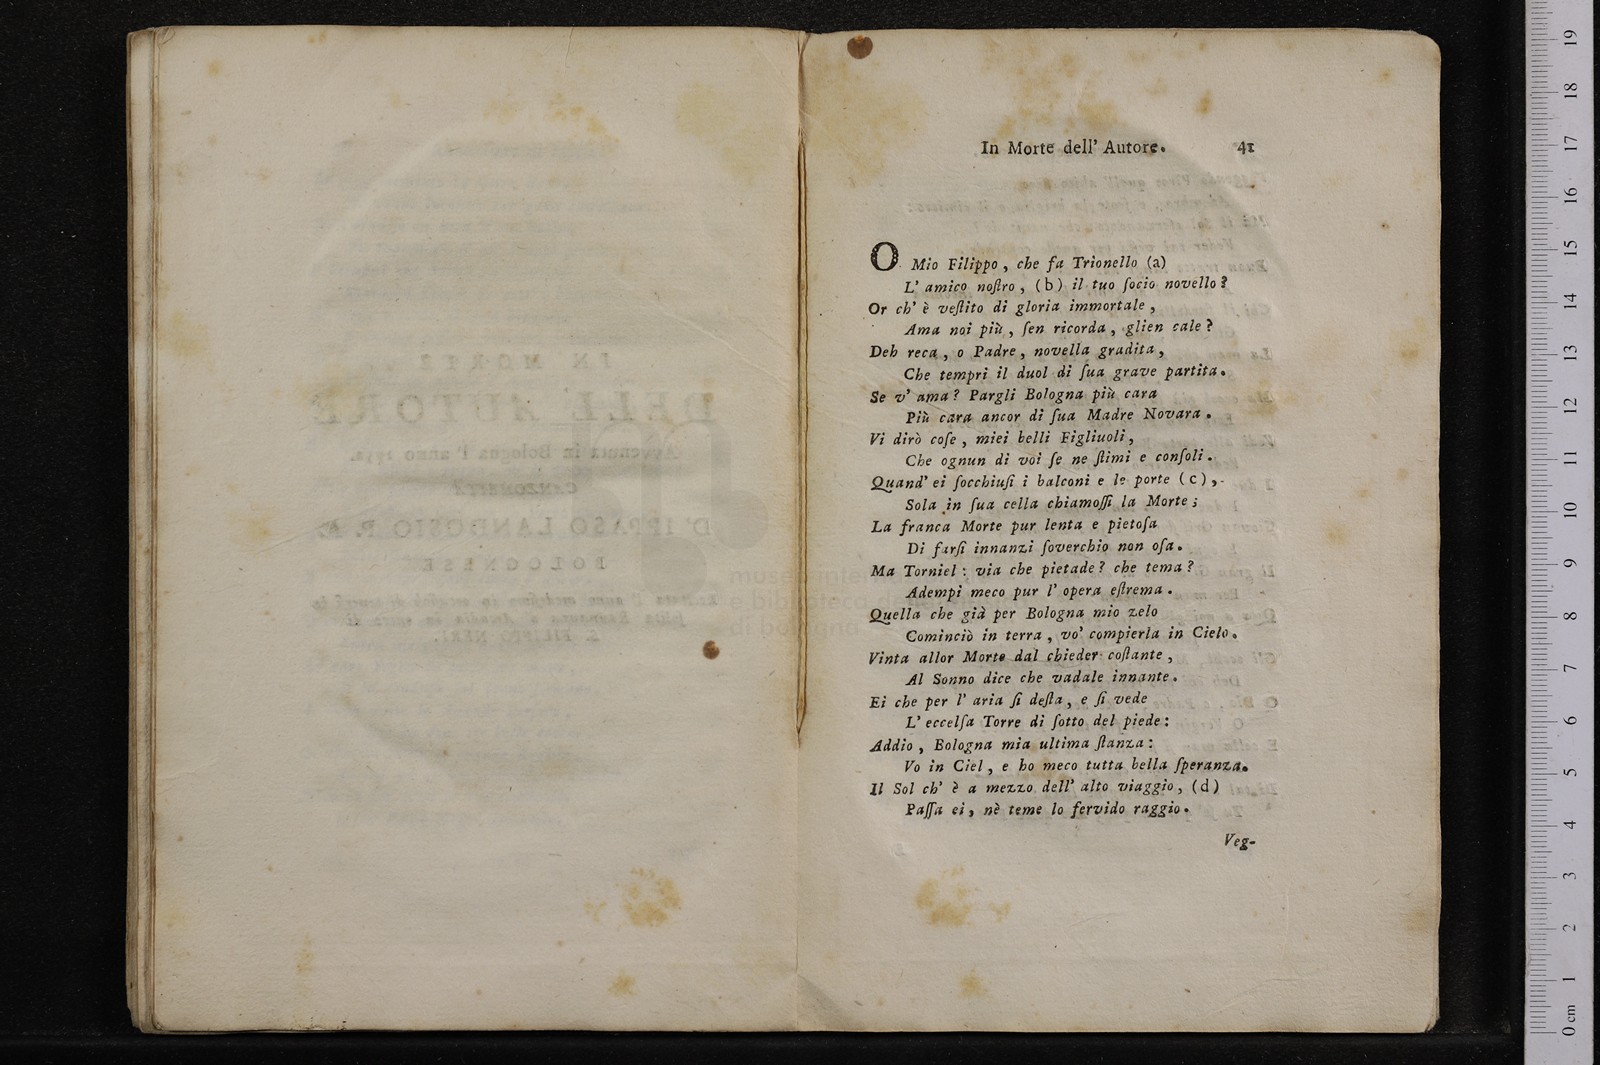 In Morte dell' Autore. 41
O Mio Filippo, che fa Trionello (a)
L' amico noſtro, (b) il tuo ſocio novello?
Or ch' è veſtito di gloria immortale,
Ama noi più, ſen ricorda, glien cale?
Deh reca, o Padre, novella gradita,
Che tempri il duol di ſua grave partita.
Se v' ama? Pargli Bologna più cara
Più cara ancor di ſua Madre Novara.
Vi dirò coſe, miei belli Figliuoli,
Che ognun di voi ſe ne ſtimi e conſoli.
Quand' ei ſocchiuſi i balconi e le porte (c),
Sola in ſua cella chiamoſſi la Morte;
La franca Morte pur lenta e pietoſa
Di farſi innanzi ſoverchio non oſa.
Ma Torniel: via che pietade? che tema?
Adempi meco pur l' opera eſtrema.
Quella che già per Bologna mio zelo
Cominciò in terra, vo' compierla in Cielo.
Vinta allor Morte dal chieder coſtante,
Al Sonno dice che vadale innante.
Ei che per l' aria ſi deſta, e ſi vede
L' eccelſa Torre di ſotto del piede:
Addio, Bologna mia ultima ſtanza:
Vo in Ciel, e ho meco tutta bella ſperanza.
Il Sol ch' è a mezzo dell' alto viaggio, (d)
Paſſa ei, nè teme lo fervido raggio.
Veg-
0 cm 1 2 3 4 5 6 7 8 9 10 11 12 13 14 15 16 17 18 19